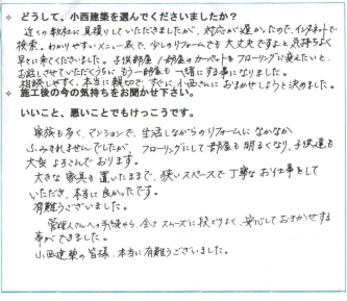 どうして、小西建築を選んでくださいましたか?
近くの数社に見積りしていただきましたが、対応が遅かったので、インターネットで
検索。わかりやすいメニュー表で、少しのリフォームでも大丈夫ですよと気持ちよく
早々に来てくださいました。子供部屋1部屋のカーペットをフローリングに変えたいと、
お話しさせていただくうちに、もう一部屋も一緒にする事になりました。
相談しやすく、本当に親切で、すぐに、小西さんにおまかせしようと決めました。
施工後の今の気持ちをお聞かせ下さい。
いいこと、悪いことでもけっこうです。
家族も多く、マンションで、生活しながらのリフォームになかなか
ふみきれませんでしたが、フローリングにして部屋も明るくなり、子供達も
大変よろこんでおります。
大きな家具も置いたままで、狭いスペースで丁寧なお仕事をして
いただき、本当に良かったです。
有難うございました。
管理人さんへの手続から、全てスムーズに段どりよく、安心しておまかせする
事ができました。
小西建築の皆様、本当に有難うございました。